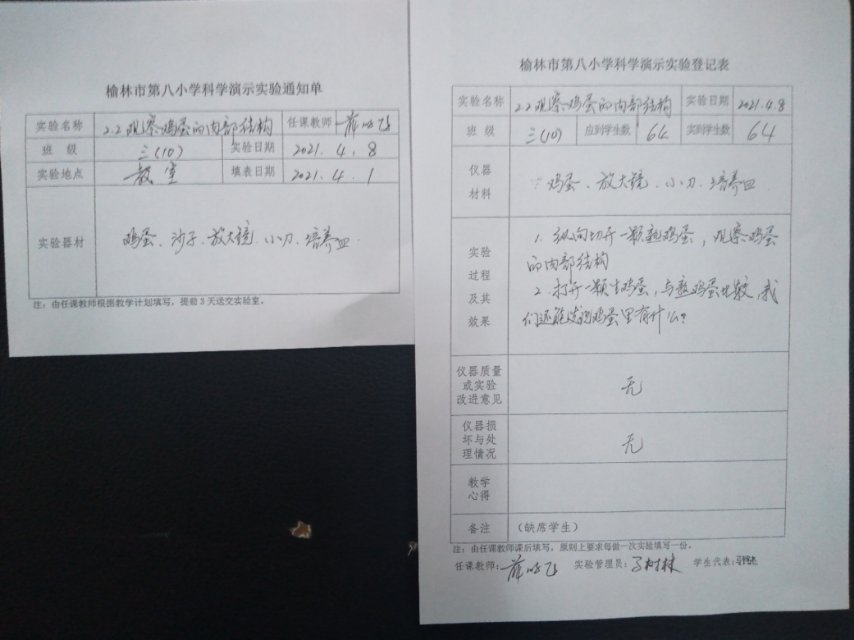 榆林市第八小学科学演示实验通知单
实验名称 2.2观察鸡蛋的内部结构 任课教师 薛
班 级 三(10) 实验日期 2021.4.8
实验地点 教室 填表日期 2021.4.1
实验器材 鸡蛋、沙子、放大镜、小刀、培养皿
注:由任课教师根据教学计划填写,提前3天送交实验室。
榆林市第八小学科学演示实验登记表
实验名称 2.2观察鸡蛋的内部结构 实验日期 2021.4.8
班 级 三(10) 应到学生数 64 实到学生数 64
仪器
材料
鸡蛋、放大镜、小刀、培养皿
实验
过程
及其
效果
1.纵向切开一颗熟鸡蛋,观察鸡蛋
的内部结构
2.打开一颗生鸡蛋,与熟鸡蛋比较,我
们还能发现鸡蛋里有什么?
仪器质量
或实验
改进意见
无
仪器损
坏与处
理情况
无
教学
心得
备注 (缺席学生)
注:由任课教师课后填写,原则上要求每做一次实验填写一份。
任课教师: 薛 实验管理员: 树林 学生代表: